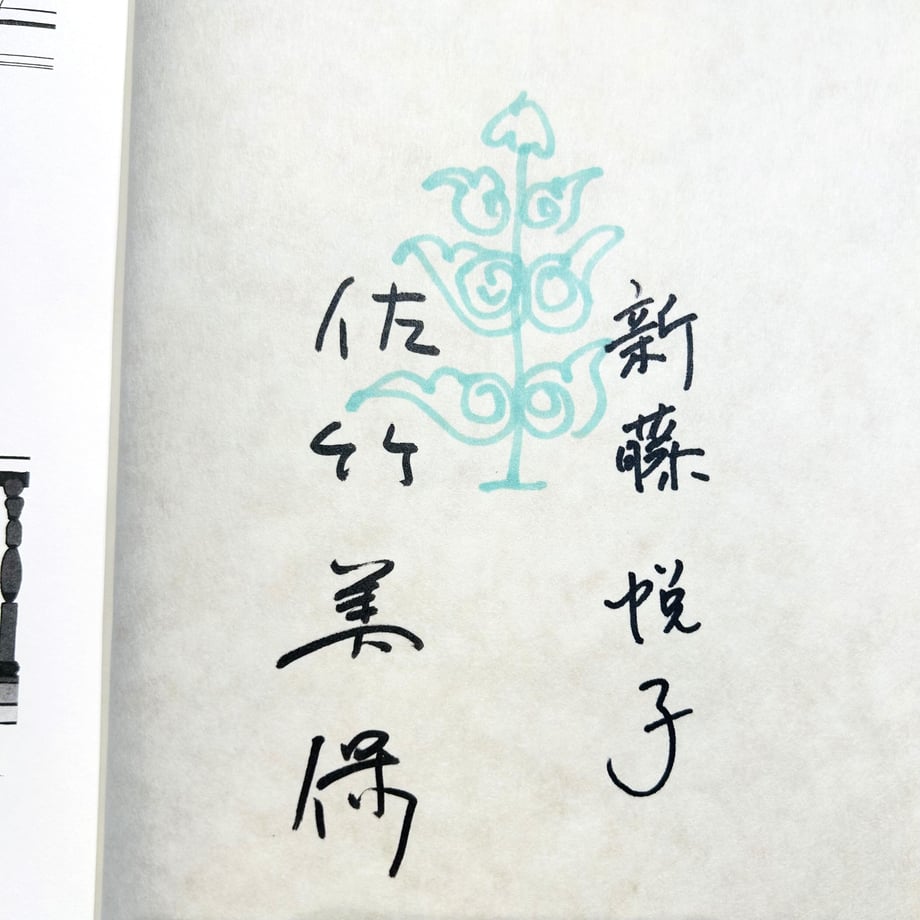 新藤悦子
佐竹美保